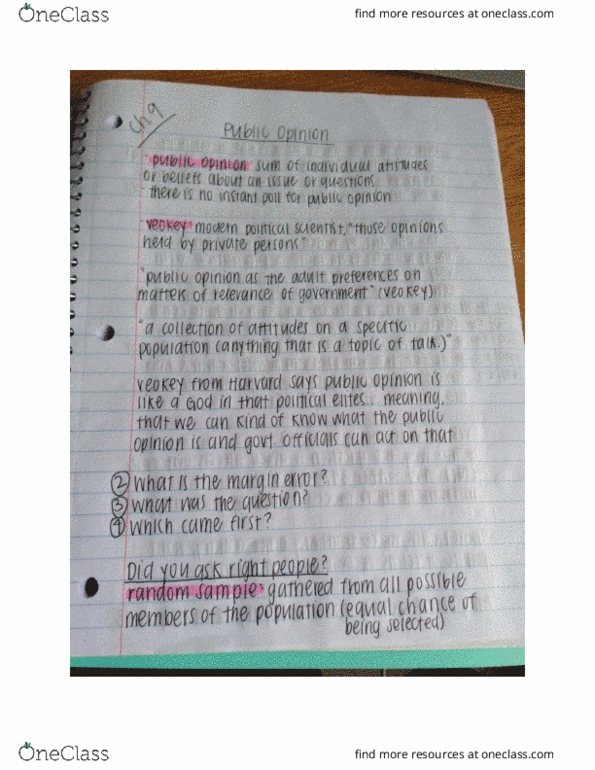 OneClass
find more resources at oneclass.com
Ch 9
Public Opinion
"public opinion sum of individual attitudes
or beliefs about an issue or questions
"there is no instant poll for public opinion
veokey modern political scientist, "those opinions
held by private persons"
"public opinion as the adult preferences on
matters of relevance of government" (veokey)
"a collection of attitudes on a specific
population (anything that is a topic of talk.)"
veokey from Harvard says public opinion is
like a God in that political elites. meaning,
that we can kind of know what the public
opinion is and govt. officials can act on that
② What is the margin error?
③ What was the question?
④ Which came first?
Did you ask right people?
random sample gathered from all possible
members of the population (equal chance of
being selected)
OneClass
find more resources at oneclass.com